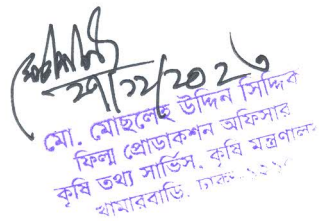 ২০২৩
মো. মোছলেহ উদ্দিন সিদ্দিক
ফিল্ম প্রোডাকশন অফিসার
কৃষি তথ্য সার্ভিস, কৃষি মন্ত্রণালয়
খামারবাড়ি, ঢাকা-১২১৫